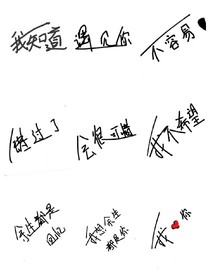 我知道 遇见你 不容易
错过了 会很可惜 我不希望
余生都是
回忆
我想余生
都是你
我 你